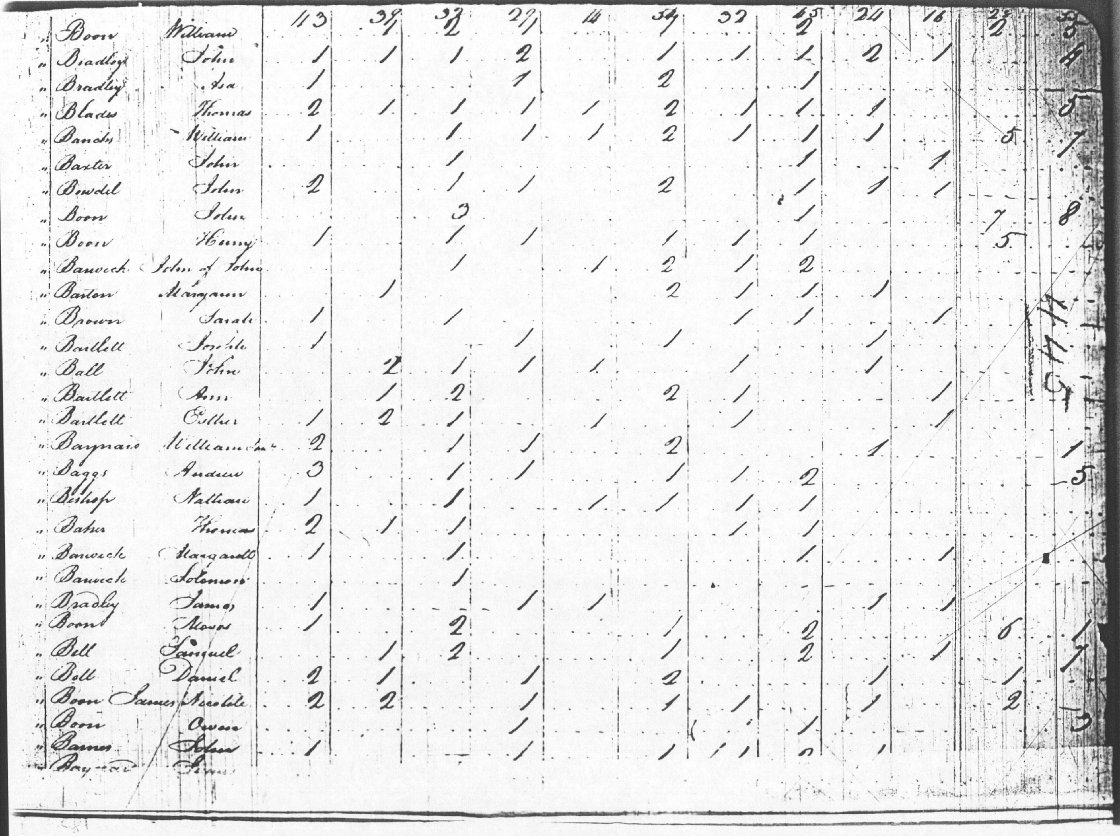 43 39 14 32 24 16
" Boon William 2 2 2
" Bradley John 1 1 1 2 1 1 1 2 1
" Bradley Asa 1 1 2 1
" Blades Thomas 2 1 1 1 1 2 1 1 1 5
" William 1 1 1 1 2 1 1 1 5 7
" Baxter John 1 1 1
" Bowdel John 2 1 1 2 1 1 1
" Boon John 3 1 7 8
" Boon Henry 1 1 1 1 1 1 5
" Barwick John of John 1 1 2 1 2
" Barton Maryann 1 2 1 1 1
" Brown Sarah 1 1 1 1 1
" Bartlett 1 1 1 1
" Ball John 2 1 1 1 1 1
" Bartlett Ann 1 2 2 1 1
" Bartlett Esther 1 2 1 1 1 1
" William 2 1 1 2 1 1
" Baggs Andrew 3 1 1 1 1 2 5
" Bishop Nathan 1 1 1 1 1 1
" Baker Thomas 2 1 1 1 1
" Barwick Margarett 1 1 1 1
" Barwick Solomon 1
" Bradley James 1 1 1 1 1
" Boon Moses 1 2 1 2 6 1
" Bell Samuel 1 2 1 2 1 7
" Bell Daniel 2 1 1 2 1 1
" Boon James 2 2 1 1 1 1 2
" Boon Owen 1 1
" John 1 1 1 1 1 1